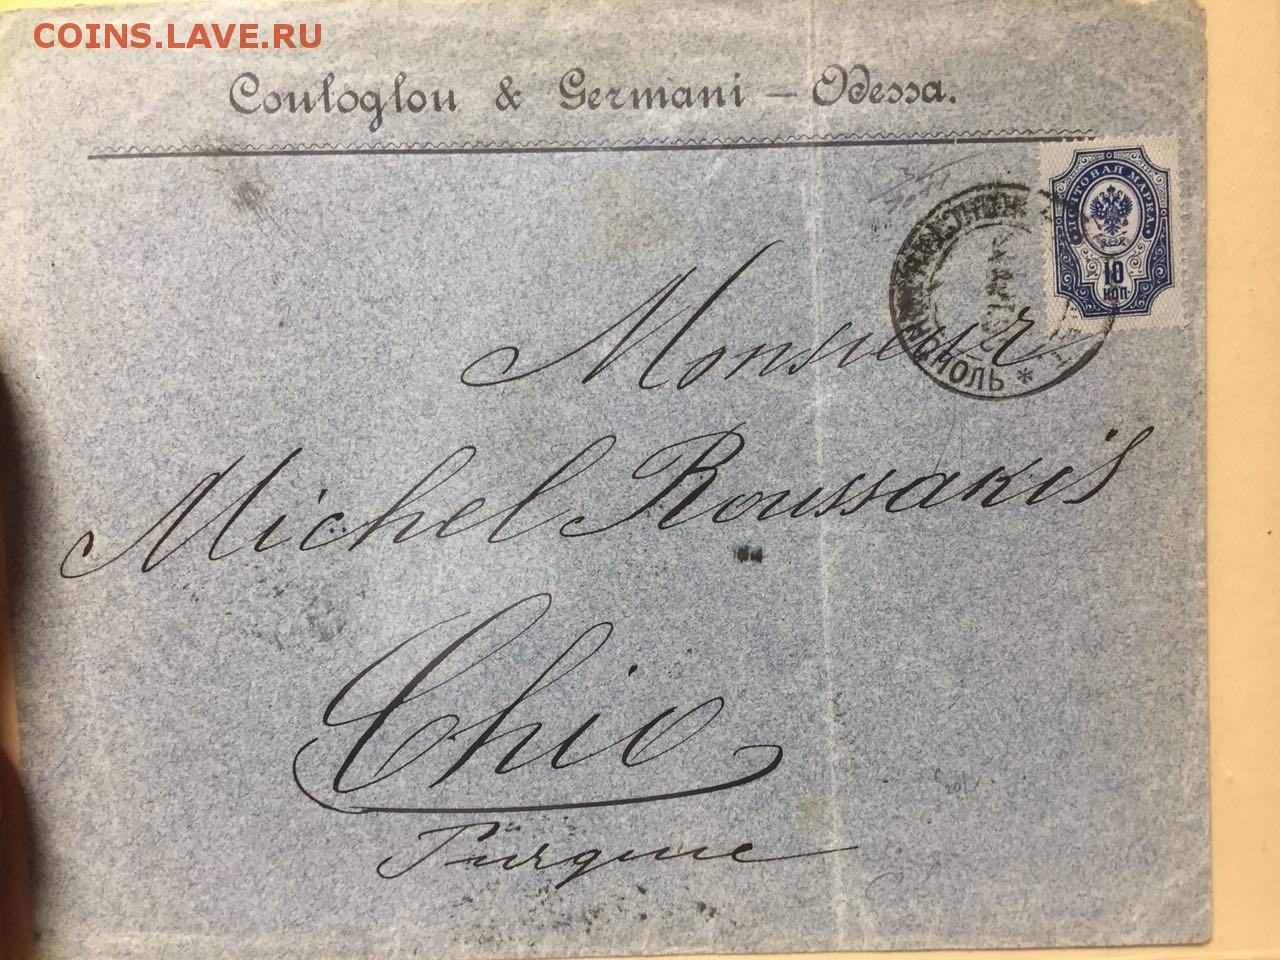 COINS.LAVE.RU
Couloglou & Germani — Odessa.
ПОЧТОВАЯ МАРКА
10
КОП.
Monsieur
Michel Roussakis
Chio
Turquie